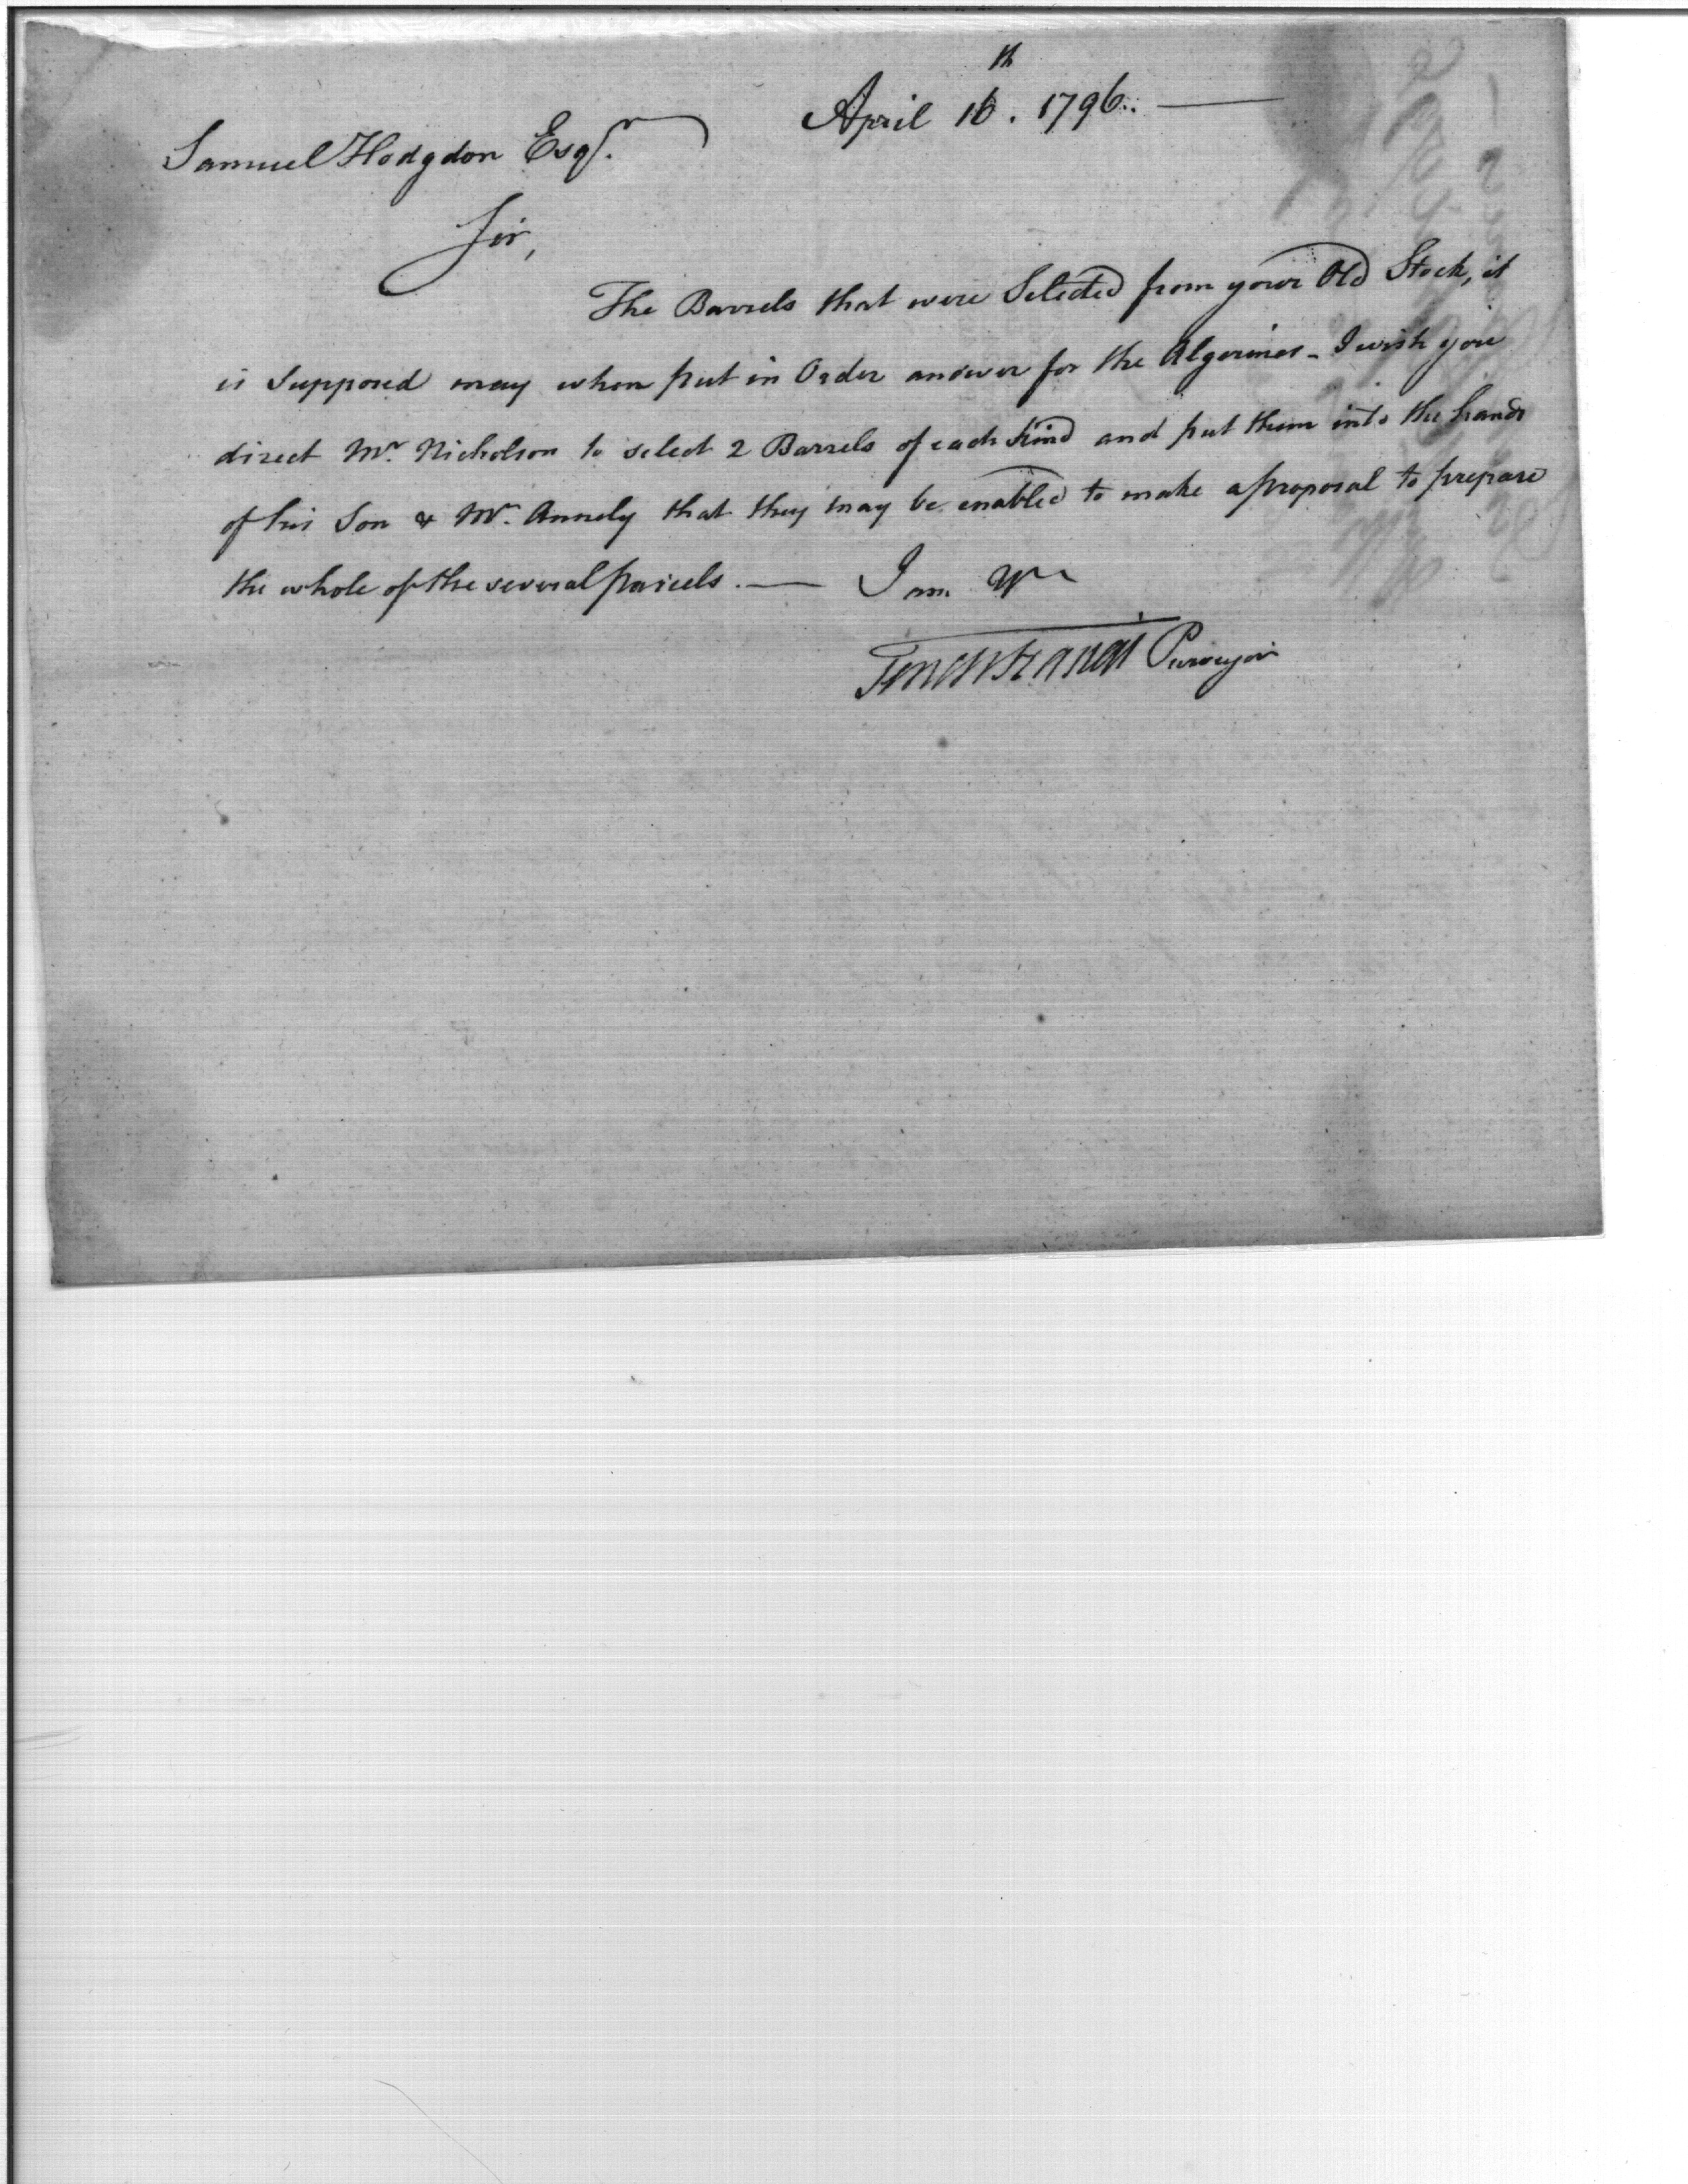 April 16th. 1796. —
Samuel Hodgdon Esqr.
Sir,
The Barrels that were Selected from your Old Stock, it
is Supposed may when put in Order answer for the Algerines - I wish you
direct Mr. Nicholson to select 2 Barrels of each kind and put them into the hands
of his Son & Mr. Annely that they may be enabled to make a proposal to prepare
the whole of the several parcels. — I am
Tench Francis Purveyor